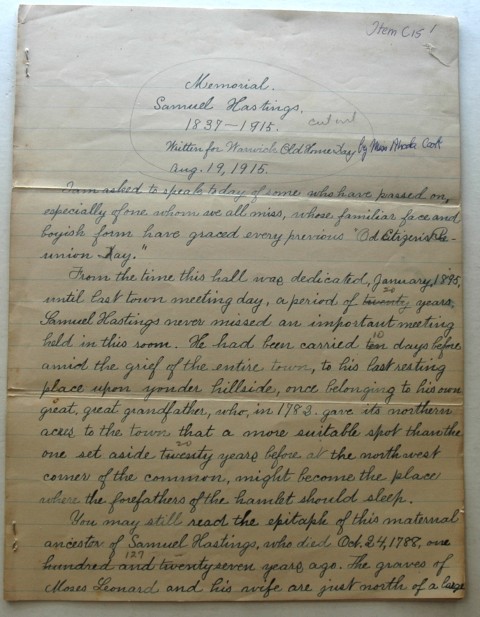 Item C15 1
Memorial.
Samuel Hastings.
1837-1915.
cut out
Written for Warwick Old Home Day by Miss Rhoda Cook
Aug. 19, 1915.
I am asked to speak today of some who have passed on,
especially of one whom we all miss, whose familiar face and
boyish form have graced every previous "Old Citizen's Re-
union Day."
From the time this hall was dedicated, January, 1895,
20
until last town meeting day, a period of twenty years,
Samuel Hastings never missed an important meeting
10
held in this room. He had been carried ten days before
amid the grief of the entire town, to his last resting
place upon yonder hillside, once belonging to his own
great, great grandfather, who, in 1783. gave its northern
acres to the town that a more suitable spot than the
20
one set aside twenty years before at the northwest
corner of the common, might become the place
where the forefathers of the hamlet should sleep.
You may still read the epitaph of this maternal
ancestor of Samuel Hastings, who died Oct. 24, 1788, one
127
hundred and twenty seven years ago. The graves of
Moses Leonard and his wife are just north of a large